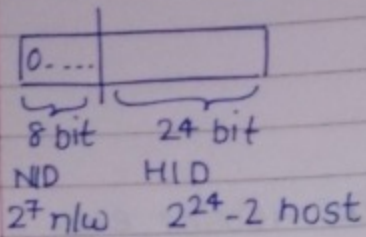 0....
8 bit 24 bit
NID HID
2⁷ n/w 2²⁴-2 host